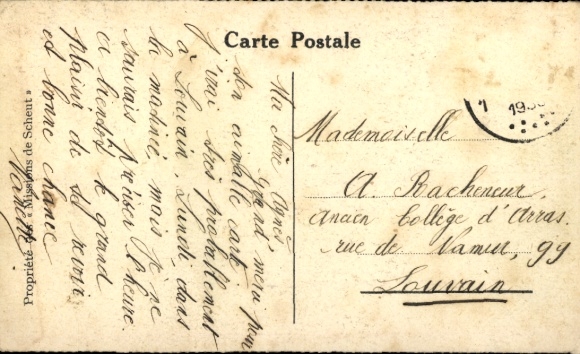 Carte Postale
Ma chère Agnès,
Grand merci pour
ton aimable carte
J'irai très probablement
à Louvain, Lundi dans
la matinée, mais je ne
saurais préciser l'heure.
à bientôt le grand
plaisir de se revoir
et bonne chance
Propriété des « Missions de Scheut »
Mademoiselle
A. Racheneur.
Ancien Collège d'Arras.
rue de Namur, 99
Louvain